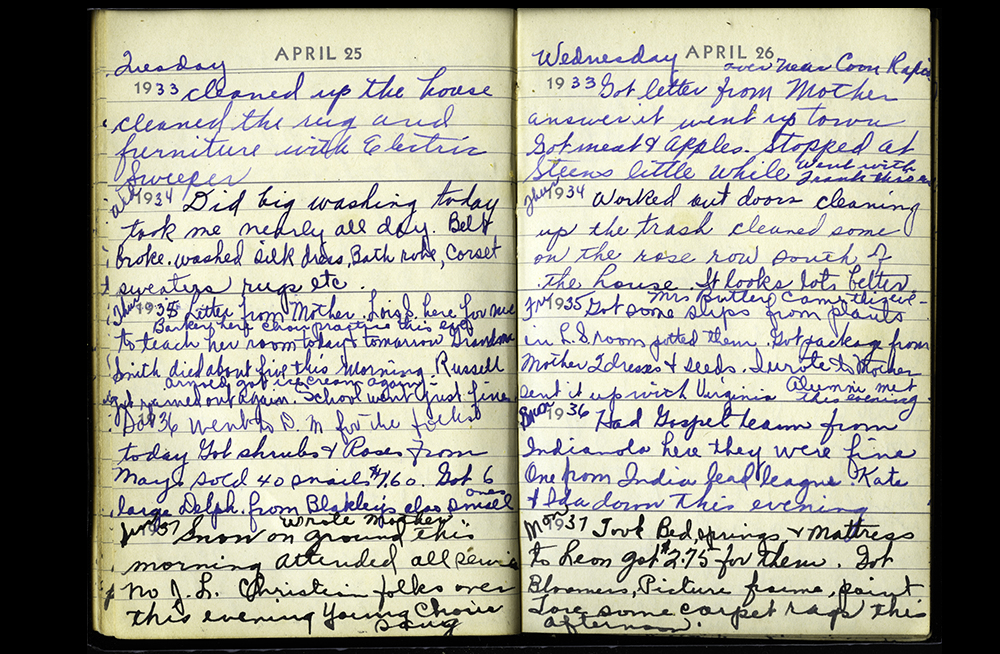 APRIL 25
Tuesday
1933 cleaned up the house
cleaned the rug and
furniture with Electric
Sweeper
Wed 1934 Did big washing today
took me nearly all day. Belt
broke. washed silk dress, Bath robe, Corset
sweaters rugs etc.
Thur 1935 Letter from Mother. Lois S. here for me
Barkey here Choir practice this eve
to teach her room today & tomorrow Grandma
Smith died about five this morning. Russell
got ice cream again
rained out again. School went just fine
Sat 36 went to D. M for the folks
today Got shrubs & Roses from
Mays sold 40 snails $1.60. Got 6
large Delph. from Blakley's also small
ones
wrote Mother
1937 Snow on ground this
morning attended all
No J. L. Christian folks over
this evening Young Choir
sang
APRIL 26
Wednesday over near Coon Rapids
1933 Got letter from Mother
answer it went up town
Got meat & Apples. Stopped at
Steens little while Went with
Frank this
Thur 1934 Worked out doors cleaning
up the trash cleaned some
on the rose row south of
the house. It looks lots better
Mrs Butler Came this eve-
Fri 1935 Got some slips from plants
in L. S room potted them. Got package from
Mother 2 dresses & seeds. I wrote to Mother
sent it up with Virginia Alumni met
this evening.
Sun 1936 Had Gospel team from
Indianola here they were fine
One from India lead league. Kate
& Ida down this evening
Mon 1937 Took Bed, springs & Mattress
to Leon got $2.75 for them. Got
Bloomers, Picture frame, paint
Tore some carpet rags this
afternoon.